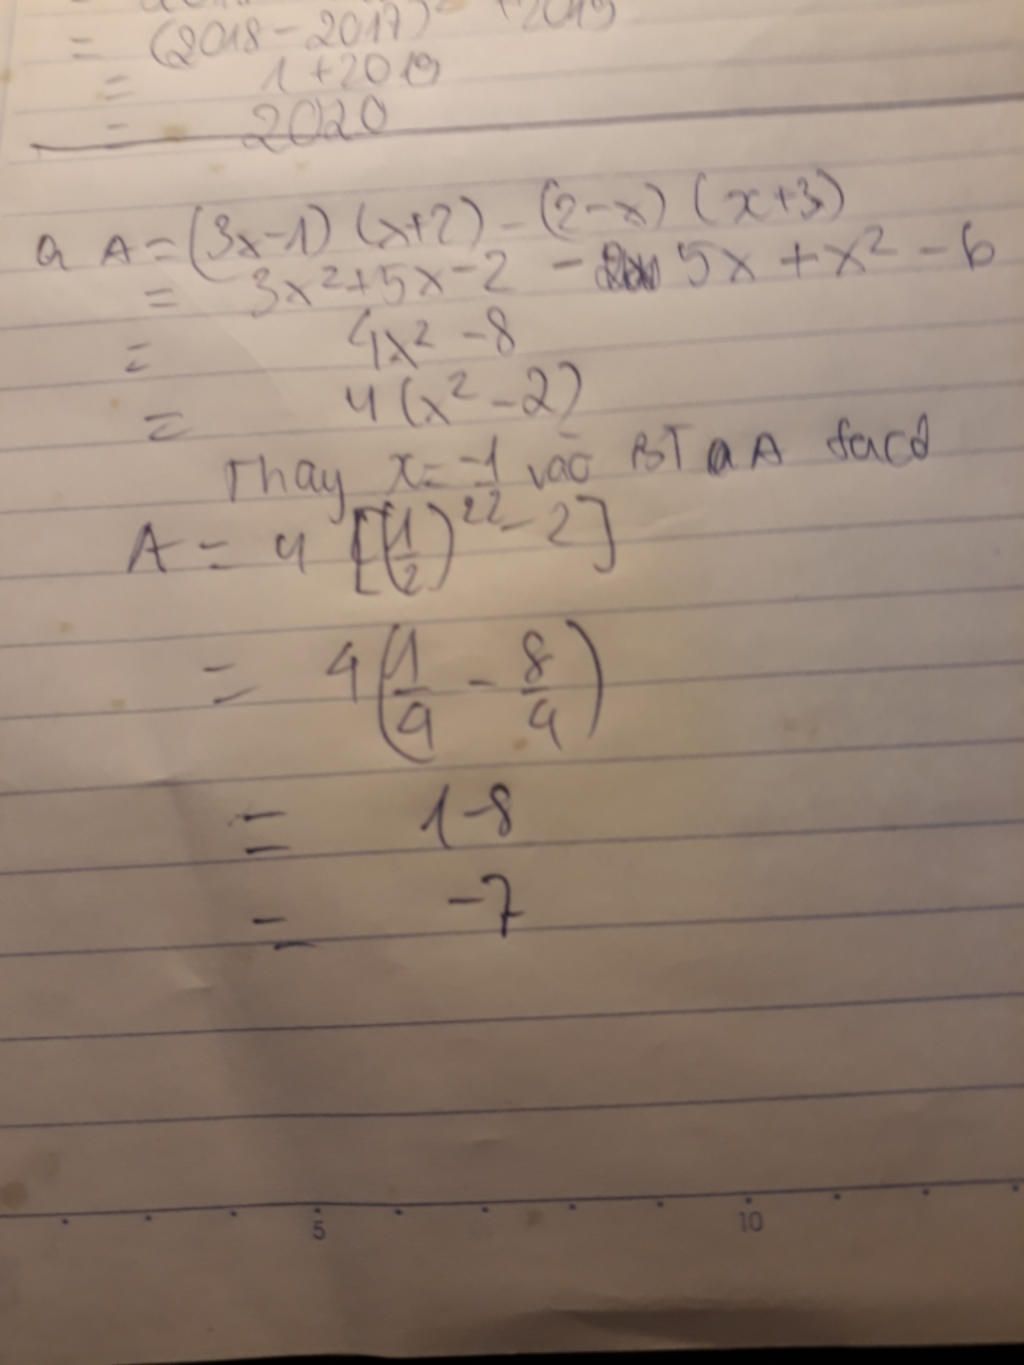 = (2018-2017)² +2019
= 1+2019
= 2020
a A = (3x-1) (x+2) - (2-x) (x+3)
= 3x²+5x-2 - 5x + x² - 6
= 4x² - 8
= 4(x² - 2)
Thay x = -1 vào BT A ta có
A = 4 [(1/2)² - 2]
= 4(1/4 - 8/4)
= 1-8
= -7
5 10